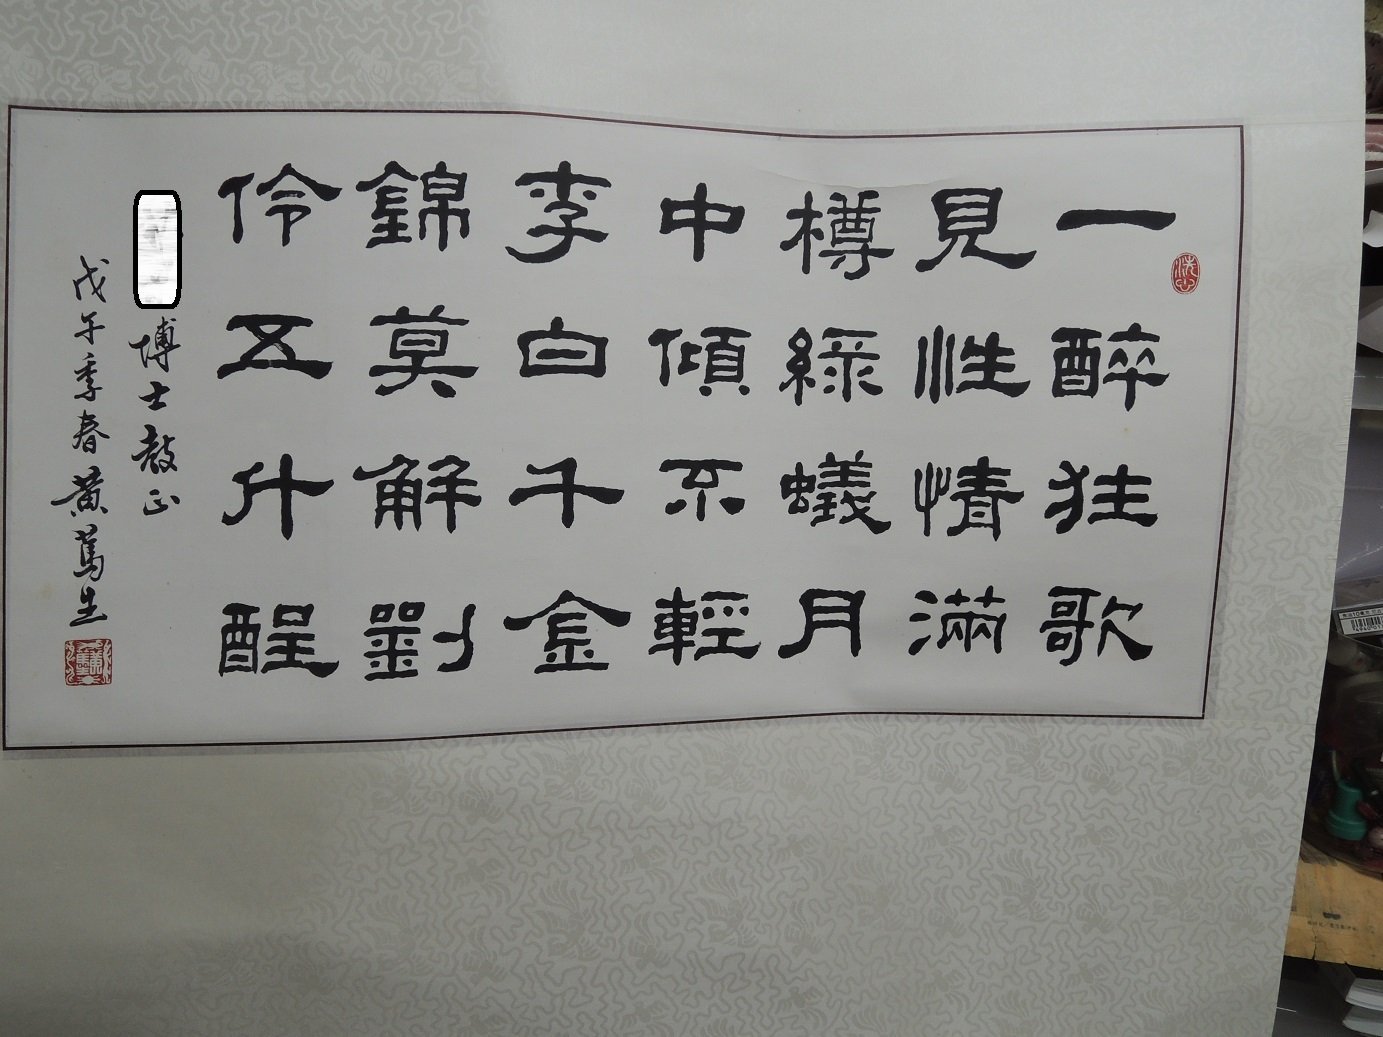 一醉狂歌
見性情滿
樽綠蟻月
中傾不輕
李白千金
錦莫解劉
伶五斗酲
博士教正
戊午季春黃篤生